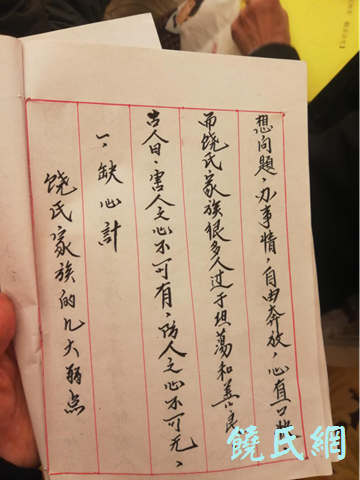 饶氏家族的几大弱点
一、缺心計
古人曰：害人之心不可有，防人之心不可无、
而饶氏家族很多人过于坦蕩和善良
想问題、办事情，自由奔放，心直口快
饶氏網